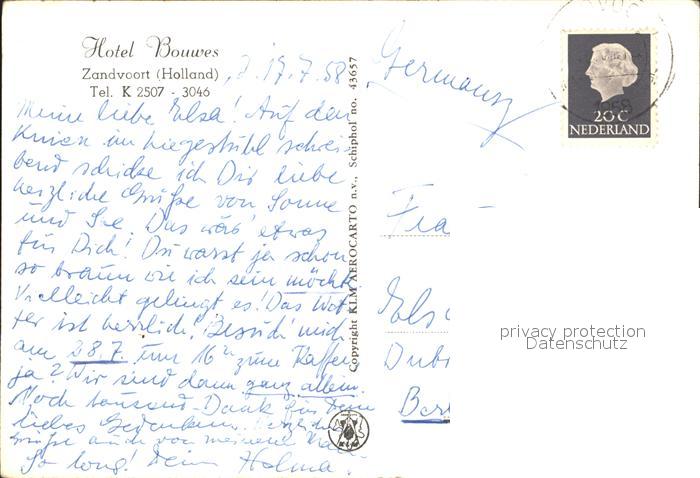 Hotel Bouwes
Zandvoort (Holland)
Tel. K 2507 - 3046
19.7.58
Germany
20 C
NEDERLAND
1958
Meine liebe Elsa! Auf den
Knien im Liegestuhl schrei-
bend schicke ich Dir liebe
herzliche Grüße von Sonne
und See. Das wär' etwas
für Dich! Du warst ja schon
so braun wie ich sein möcht
Vielleicht gelingt es! Das Wet-
ter ist herrlich! Besuch' mich
am 28.7. um 16 zum Kaffee
ja? Wir sind dann ganz allein.
Noch tausend Dank für Dein
liebes Gedenken. Herzliche
Grüße auch von meinem
So long! Deine Helma.
Copyright KLM AEROCARTO n.v., Schiphol no. 43657
KLM
Frau
Els
Dub
Ber
privacy protection
Datenschutz